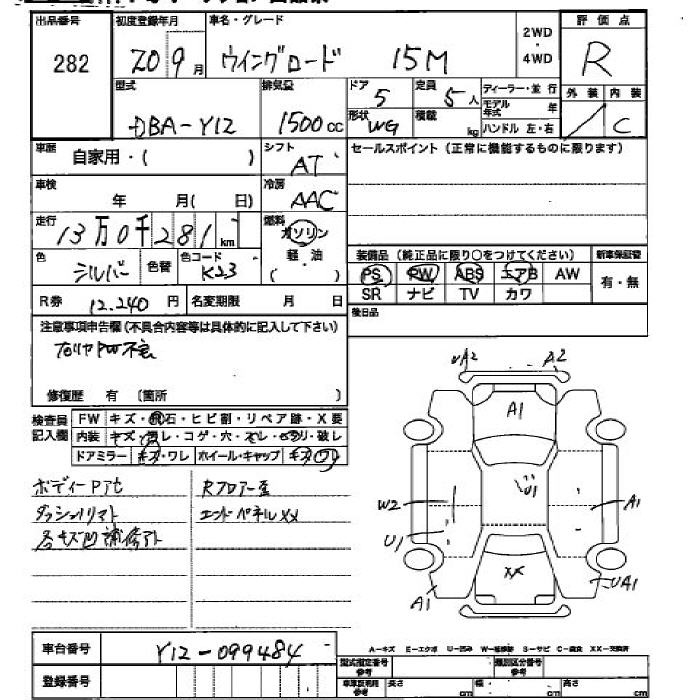 出品番号 初度登録年月 車名・グレード 2WD・4WD 評価点
282 20 9月 ウイングロード 15M R
型式 排気量 ドア 5 定員 5人 ディーラー・並行 外装 内装
DBA-Y12 1500cc 形状 WG 積載 kg モデル年式 年 C
ハンドル 左・右
車歴 自家用・( ) シフト AT セールスポイント(正常に機能するものに限ります)
車検 年 月(日) 冷房 AAC
走行 13万0千281km 燃料 ガソリン 軽・油 ( )
色 シルバー 色替 色コード K23
装備品(純正品に限り○をつけてください) 新車保証書
PS PW ABS エアB AW 有・無
SR ナビ TV カワ
R券 12.240円 名変期限 月 日 後日品
注意事項申告欄(不具合内容等は具体的に記入して下さい)
右リヤPW不良
修復歴 有 (箇所 )
検査員記入欄 FW キズ・飛石・ヒビ割・リペア跡・X要
内装 キズ・ヨレ・コゲ・穴・スレ・破レ
ドアミラー キズ・ワレ ホイール・キャップ キズ・ワレ
ボディーP
Rフロアー
エンドパネルXX
各キズ凹補修
UA2 A2
A1
W2 U1 A1
U1
XX
A1 UA1
A-キズ E-エクボ U-凹み S-サビ XX-交換済
車台番号 Y12-099484
登録番号
型式指定番号 参考 類別区分番号 参考
長さ cm 幅 cm 高さ cm